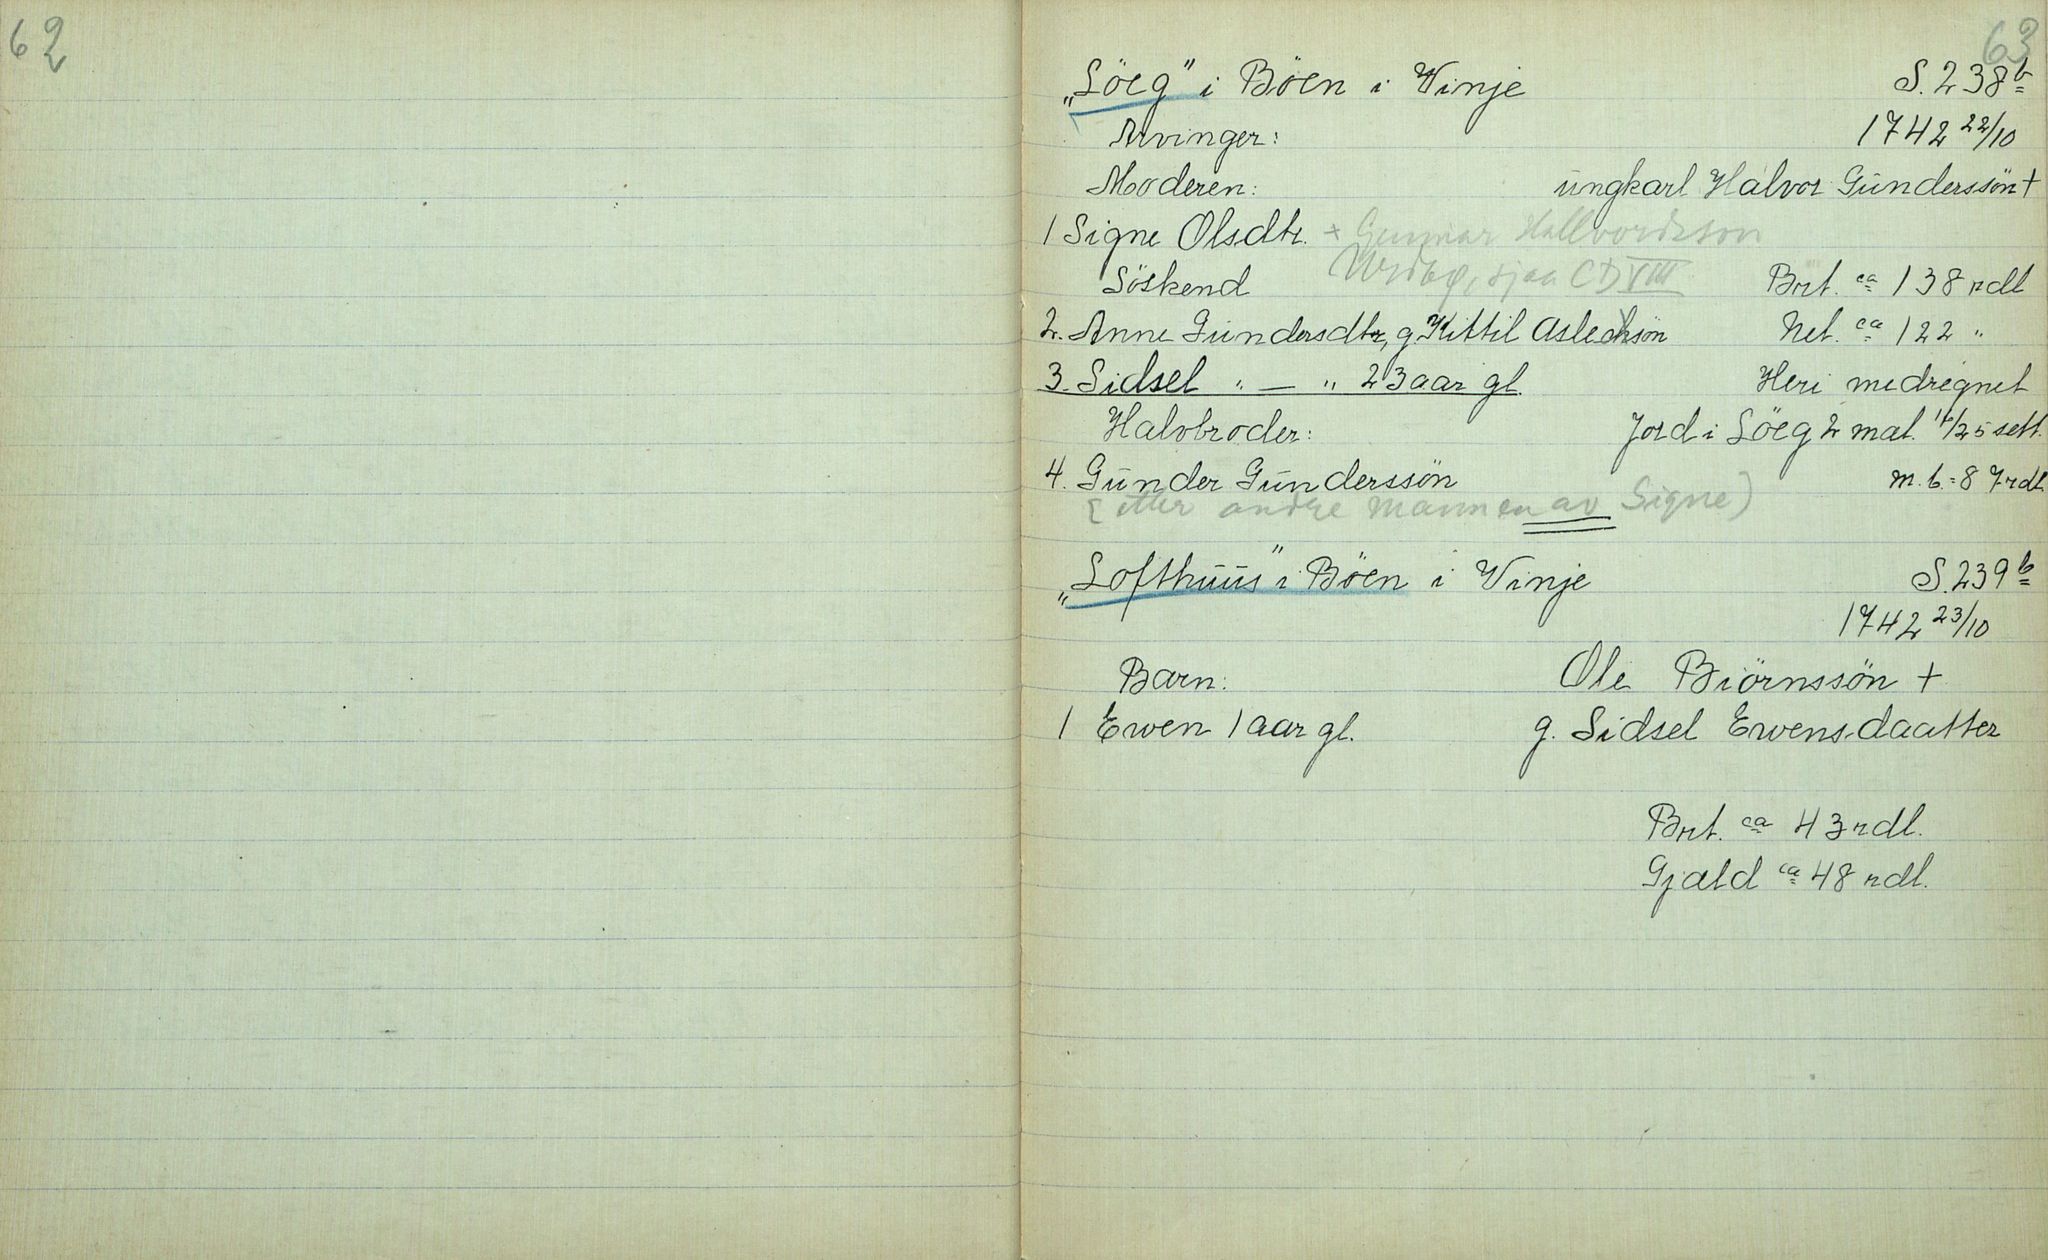 62
63
„Löeg" i Böen i Vinje S. 238b
Arvinger: 1742 22/10
Moderen: ungkarl Halvor Gunderssön +
1 Signe Olsdtr. + Gunnar Hallvordson
sjaa CD VIII
Söskend Brt. ca 138 rdl
2. Anne Gundersdtr, g. Kittil Aslechsön Net. ca 122 "
3. Sidsel " — " 23 aar gl. Heri medregnet
Halvbroder: Jord i Löeg 2 mal. sett.
4. Gunder Gunderssön m. b. = 87 rdl
(etter andre mannen av Signe)
„Lofthuus" i Böen i Vinje S. 239b
1742 23/10
Barn: Ole Biörnssön +
1 Ewen 1 aar gl. g. Sidsel Ewensdaatter
Brt. ca 43 rdl.
Gjæld ca 48 rdl.